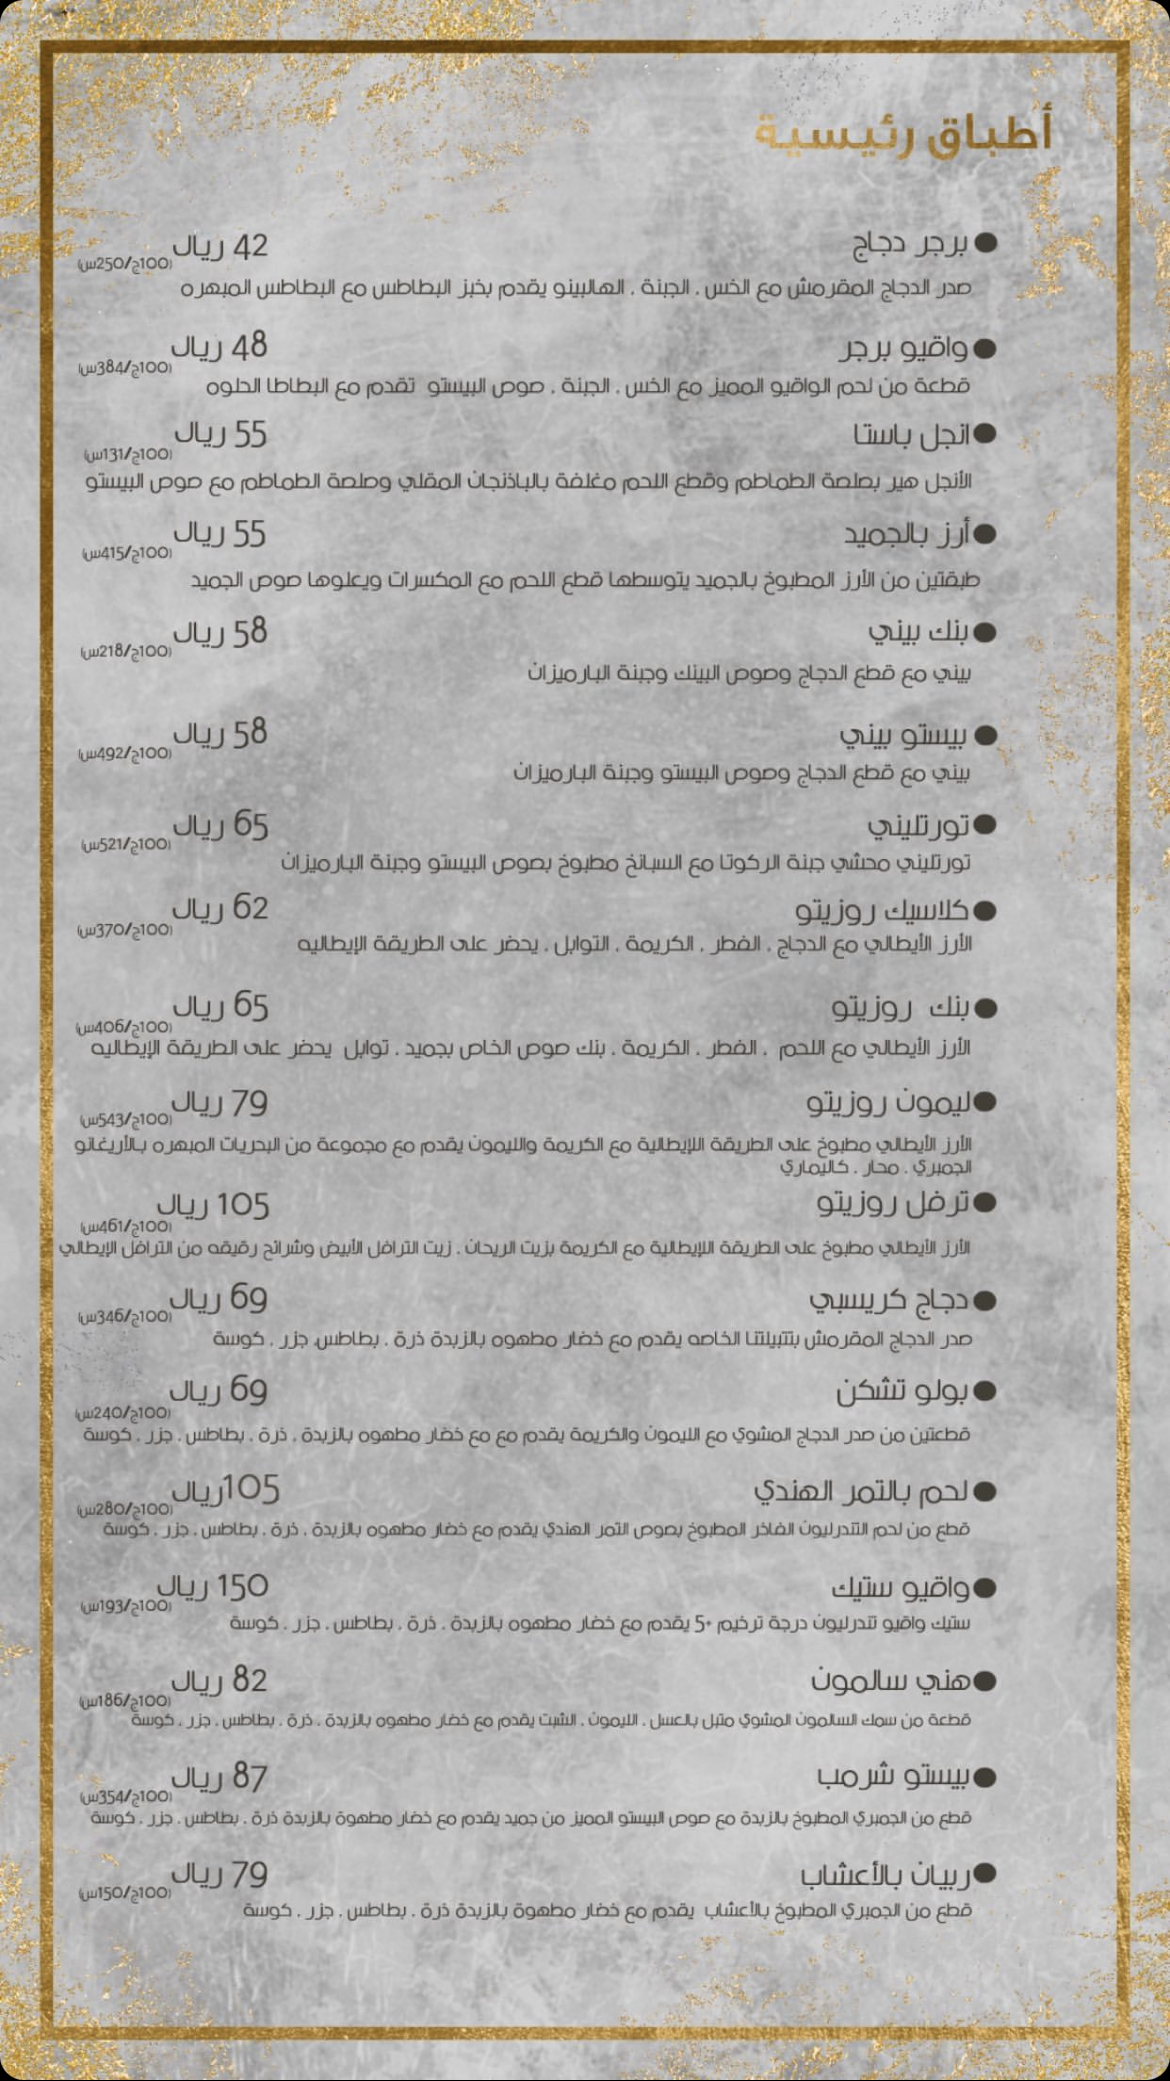 أطباق رئيسية
برجر دجاج 42 ريال (100ج/250س)
صدر الدجاج المقرمش مع الخس . الجبنة . الهالبينو يقدم بخبز البطاطس مع البطاطس المبهره
واقيو برجر 48 ريال (100ج/384س)
قطعة من لحم الواقيو المميز مع الخس . الجبنة . صوص البيستو تقدم مع البطاطا الحلوه
انجل باستا 55 ريال (100ج/131س)
الأنجل هير بصلصة الطماطم وقطع اللحم مغلفة بالباذنجان المقلي وصلصة الطماطم مع صوص البيستو
أرز بالجميد 55 ريال (100ج/415س)
طبقتين من الأرز المطبوخ بالجميد يتوسطها قطع اللحم مع المكسرات ويعلوها صوص الجميد
بنك بيني 58 ريال (100ج/218س)
بيني مع قطع الدجاج وصوص البينك وجبنة البارميزان
بيستو بيني 58 ريال (100ج/492س)
بيني مع قطع الدجاج وصوص البيستو وجبنة البارميزان
تورتليني 65 ريال (100ج/521س)
تورتليني محشي جبنة الركوتا مع السبانخ مطبوخ بصوص البيستو وجبنة البارميزان
كلاسيك روزيتو 62 ريال (100ج/370س)
الأرز الأيطالي مع الدجاج . الفطر . الكريمة . التوابل . يحضر على الطريقة الإيطاليه
بنك روزيتو 65 ريال (100ج/406س)
الأرز الأيطالي مع اللحم . الفطر . الكريمة . بنك صوص الخاص بجميد . توابل يحضر على الطريقة الإيطاليه
ليمون روزيتو 79 ريال (100ج/543س)
الأرز الأيطالي مطبوخ على الطريقة اللإيطالية مع الكريمة والليمون يقدم مع مجموعة من البحريات المبهره بالأريغانو
الجمبري . محار . كاليماري
ترفل روزيتو 105 ريال (100ج/461س)
الأرز الأيطالي مطبوخ على الطريقة اللإيطالية مع الكريمة بزيت الريحان . زيت الترافل الأبيض وشرائح رقيقه من الترافل الإيطالي
دجاج كريسبي 69 ريال (100ج/346س)
صدر الدجاج المقرمش بتتبيلتنا الخاصه يقدم مع خضار مطهوه بالزبدة ذرة . بطاطس. جزر . كوسة
بولو تشكن 69 ريال (100ج/240س)
قطعتين من صدر الدجاج المشوي مع الليمون والكريمة يقدم مع مع خضار مطهوه بالزبدة . ذرة . بطاطس . جزر . كوسة
لحم بالتمر الهندي 105ريال (100ج/280س)
قطع من لحم التندرليون الفاخر المطبوخ بصوص التمر الهندي يقدم مع خضار مطهوه بالزبدة . ذرة . بطاطس . جزر . كوسة
واقيو ستيك 150 ريال (100ج/193س)
ستيك واقيو تندرليون درجة ترخيم +5 يقدم مع خضار مطهوه بالزبدة . ذرة . بطاطس . جزر . كوسة
هني سالمون 82 ريال (100ج/186س)
قطعة من سمك السالمون المشوي متبل بالعسل . الليمون . الشبت يقدم مع خضار مطهوه بالزبدة . ذرة . بطاطس . جزر . كوسة
بيستو شرمب 87 ريال (100ج/354س)
قطع من الجمبري المطبوخ بالزبدة مع صوص البيستو المميز من جميد يقدم مع خضار مطهوة بالزبدة ذرة . بطاطس . جزر . كوسة
ربيان بالأعشاب 79 ريال (100ج/150س)
قطع من الجمبري المطبوخ بالأعشاب يقدم مع خضار مطهوة بالزبدة ذرة . بطاطس . جزر . كوسة